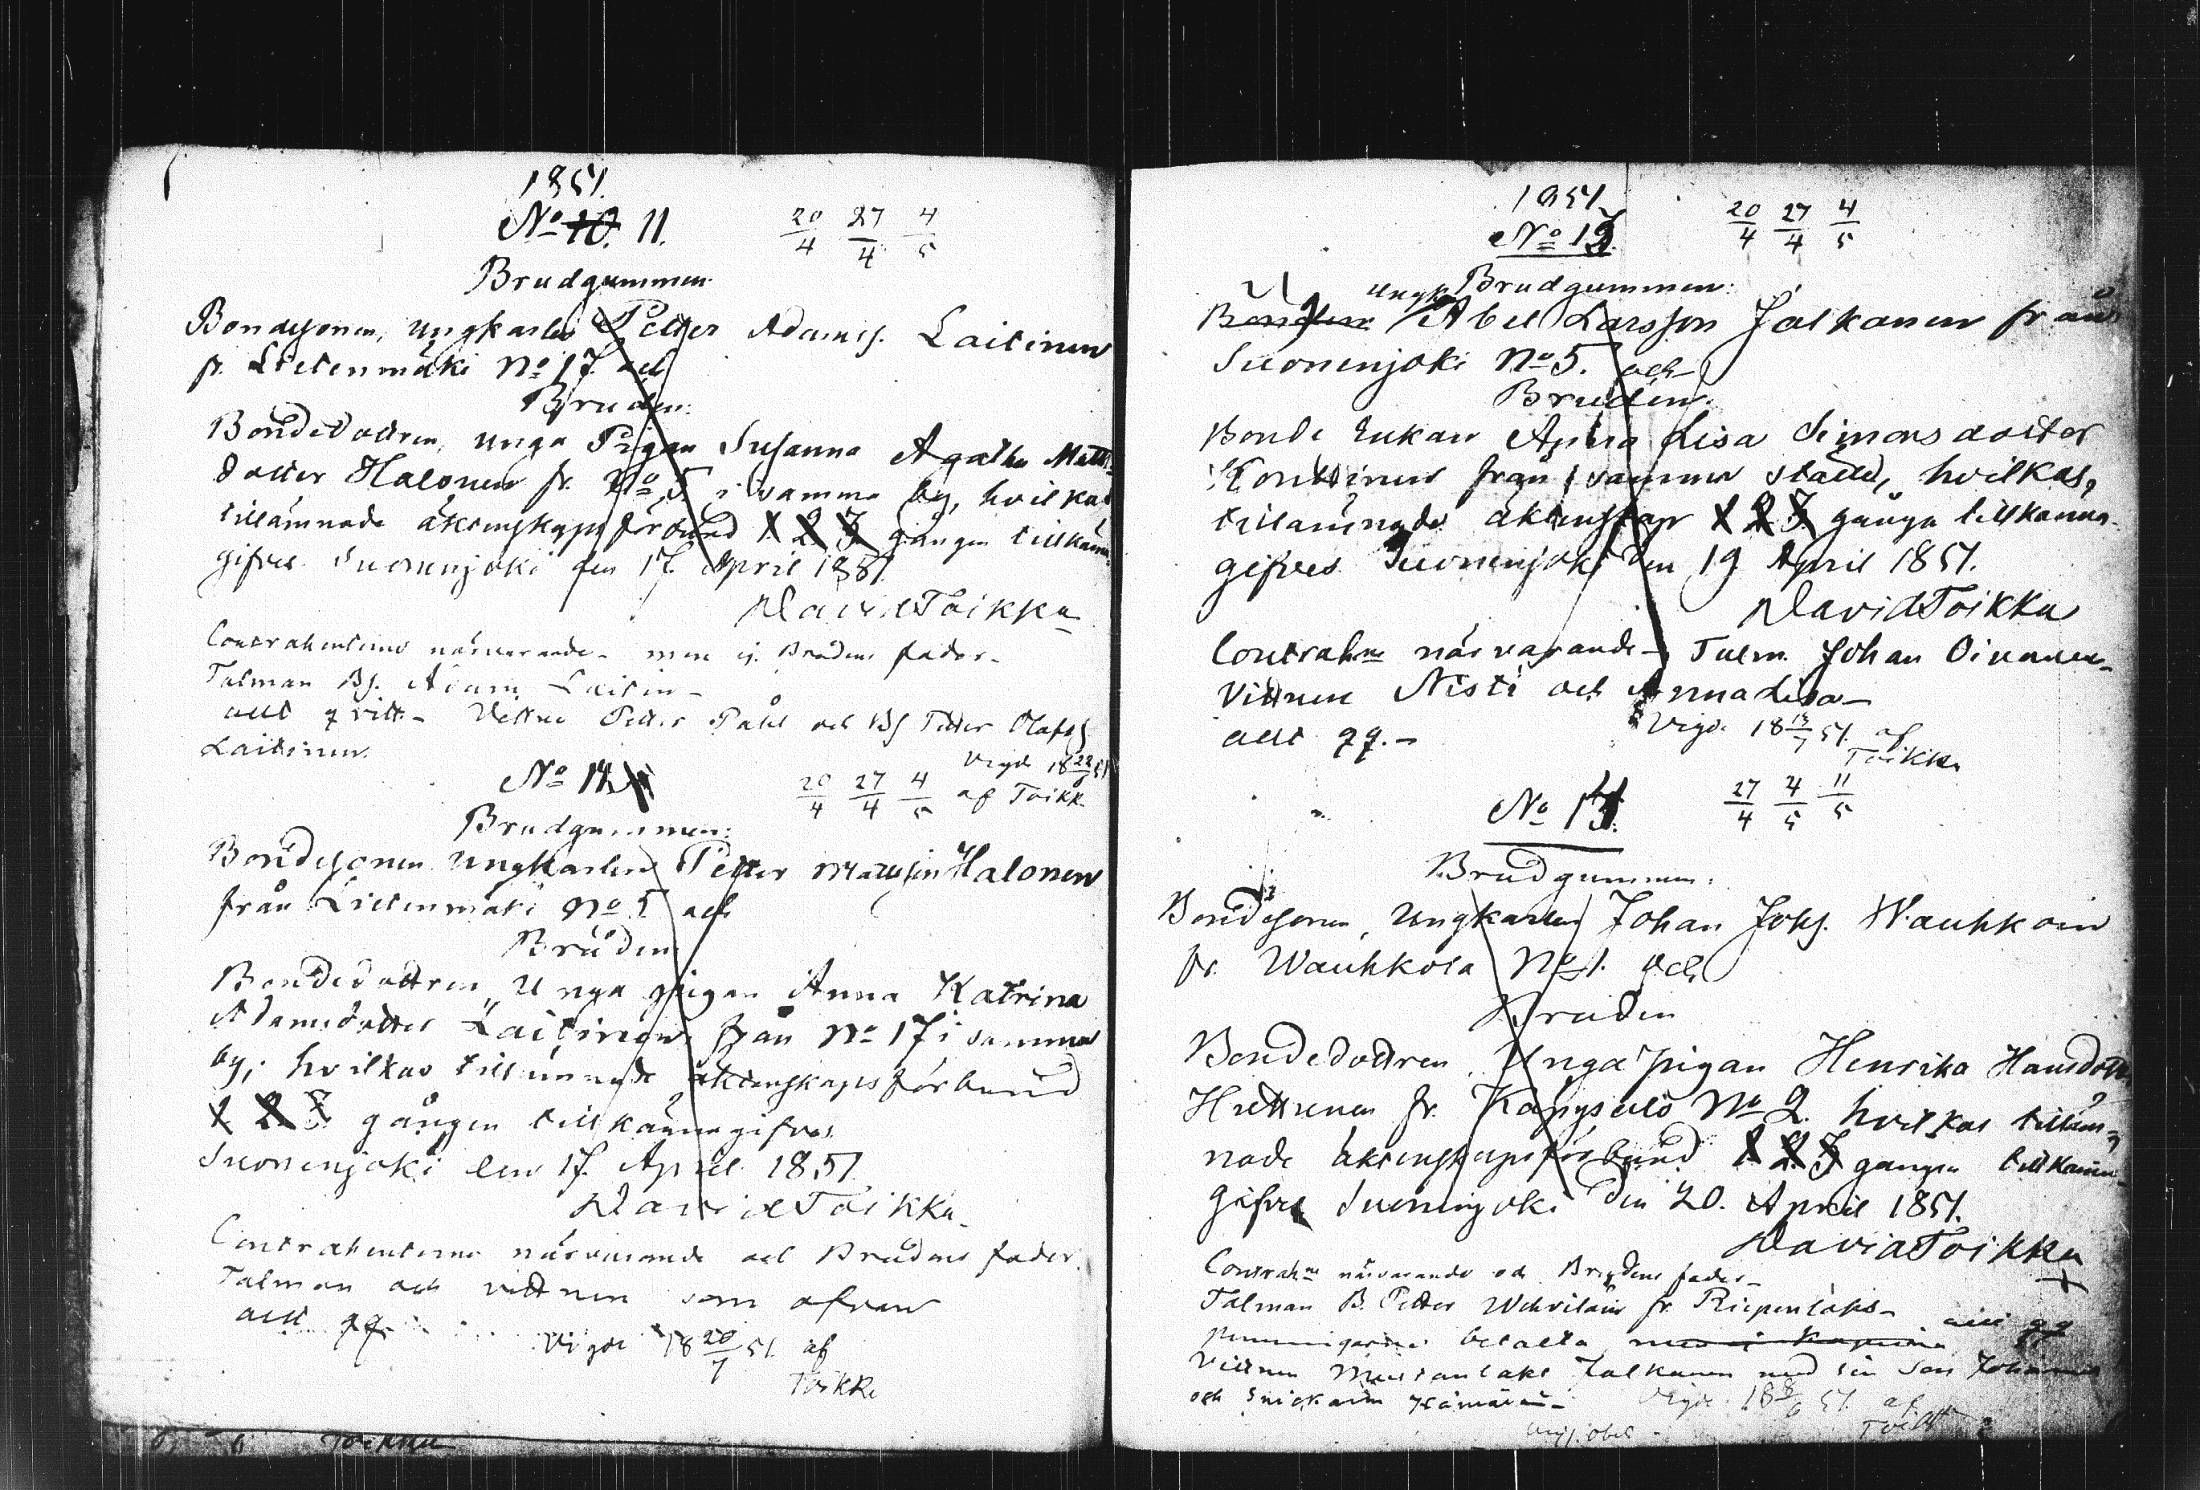 1851.
No 10. 11. 20/4 27/4 4/5
Brudgummen:
Bondesonen, ungkarlen Petter Adamsf. Laitinen
fr. Lietenmäki No 17. och
Bruden:
Bondedottren, unga Pigan Susanna Agatha Matts
dotter Halonen fr. No 5 i samma by, hvilkas
tillämnade äktenskaps förbund 1. 2. 3. gången tillkänna
gifves. Suonenjoki den 17. April 1851.
David Toikka
Contrahenterne närvarande - men ej Brudens fader -
Talman Bs. Adam Laitin -
allt qvitt - Vittne Petter Påhl och BS Petter Olafss
Laitinen.
Vigde 18 22/6 51
No 12. 20/4 27/4 4/5 af Toikk
Brudgummen:
Bondesonen ungkarlen Petter Mattsson Halonen
från Lietenmäki No 5 och
Bruden
Bondedottren, Unga pigan Anna Katrina
Adamsdotter Laitinen från No 17 i samma
by; hvilkas tillämnade äktenskapsförbund
1. 2. 3. gången tillkännagifves.
Suonenjoki den 17. April 1851.
David Toikka
Contrahenterne närvarande och Brudens fader.
Talman och vittnen som ofvan
allt qq.
Vigde 18 20/7 51. af
Toikka
Toikka
1851
No 13. 20/4 27/4 4/5
Brudgummen:
Bonden Ungk Abel Larsson Jalkanen från
Suonenjoki No 5. och
Bruden.
Bonde Enkan Anna Lisa Simonsdotter
Konttinen från samma ställe, hvilkas,
tillämnade äktenskap 1 2 3 gånga tillkänna
gifves Suonenjoki den 19 April 1851.
David Toikka
Contrahne närvarande - Talm. Johan Oinonen -
Vittnen Nisti och Anna Lisa -
allt qq. -
Vigde 18 13/7 51. af
Toikka
No 14. 27/4 4/5 11/5
Brudgummen:
Bondesonen, Ungkarlen Johan Johs. Wauhkoin
fr. Wauhkola No 1. och
Bruden
Bondedottren, Unga pigan Henrika Hansdotter
Huttunen fr. Kärpysalo No 2. hvilkas tilläm-
nade äktenskapsförbund 1 2 3 gången tillkänna
gifves Suonenjoki den 20. April 1851.
David Toikka
Contrahne närvarande och Brudens fader -
Talman B. Petter Wehviläin fr. Riepenlaks -
allt qq
penningarne betalta
Vittnen Jalkanen med sin son Johannes
och Snickaren
Vigde 18 8/6 51. af
Toikka